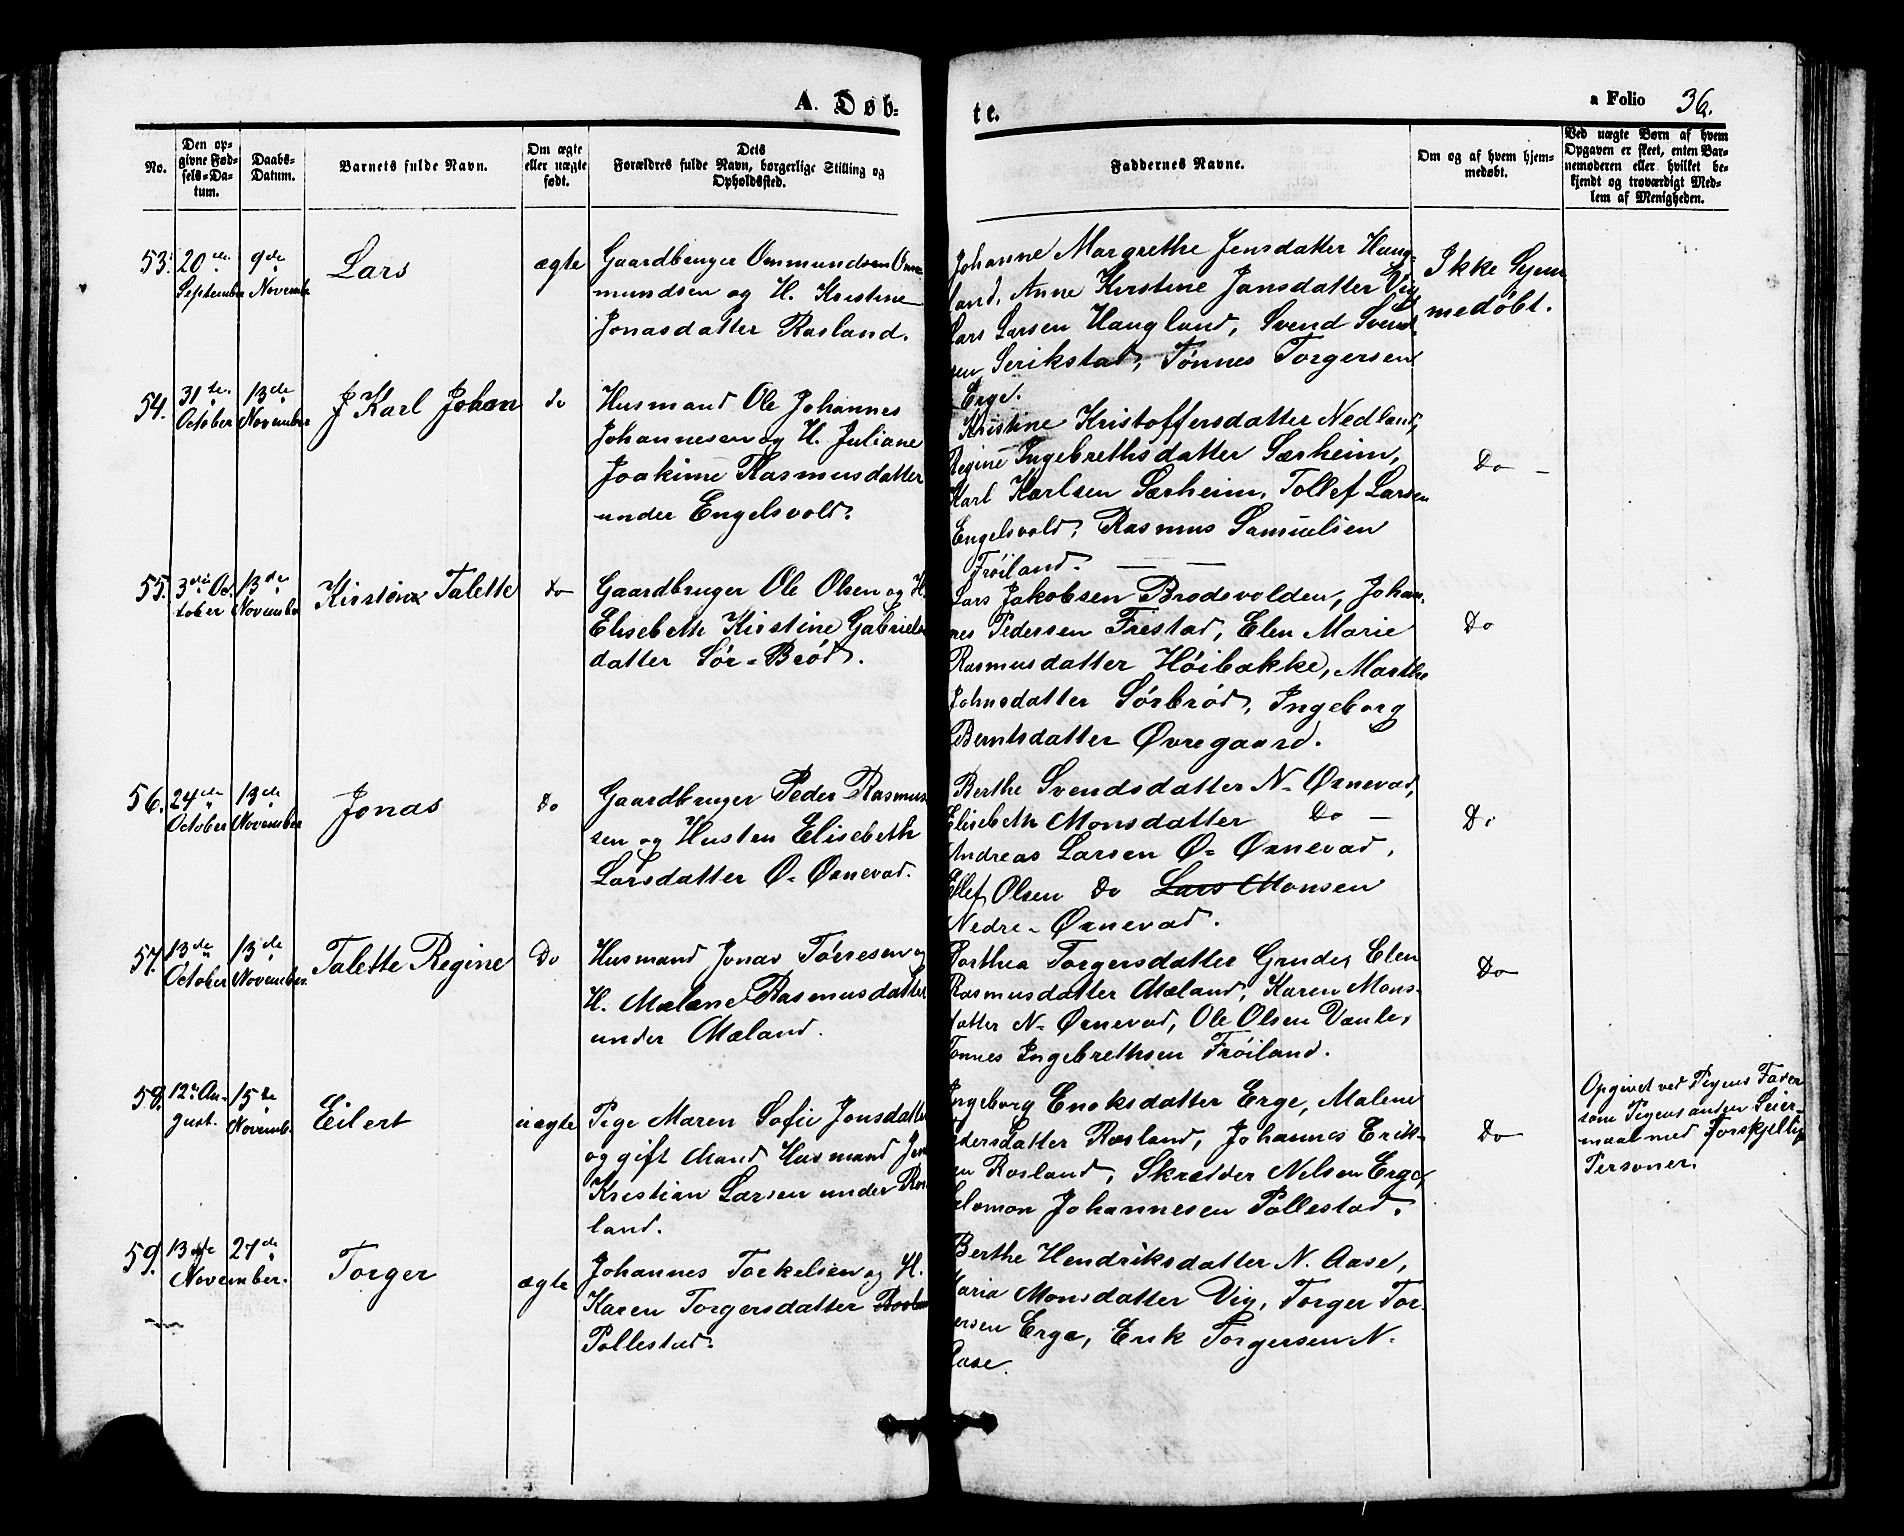 A. Døb-
te.
a Folio 36.
No.
Den op-
givne Fød-
sels-Da-
tum.
Daabs-
Datum.
Barnets fulde Navn.
Om ægte
eller uægte
født.
Dets
Forældres fulde Navn, borgerlige Stilling og
Opholdssted.
Faddernes Navne.
Om og af hvem hjem-
medøbt.
Ved uægte Børn af hvem
Opgaven er skeet, enten Bar-
nemoderen eller hvilket be-
kjendt og troværdigt Med-
lem af Menigheden.
53.
20de
September
9de
Novemb.
Lars
ægte
Gaardbruger Ommundsen Om-
mundsen og H. Kristine
Jonasdatter Rosland.
Johanne Margrethe Jensdatter Haug-
land, Anne Kirstine Jansdatter Vig
Lars Larsen Haugland, Svend Svend-
sen Serikstad, Tønnes Torgersen
Erge.
Ikke Hjem
medøbt.
54.
31te
October
13de
November
J Karl Johan
do
Husmand Ole Johannes
Johannesen og H. Juliane
Joakime Rasmusdatter
under Engelsvold.
Kristine Kristoffersdatter Nedland,
Regine Ingebrethsdatter Særheim,
Karl Karlsen Særheim, Tollef Larsen
Engelsvold, Rasmus Samuelsen
Frøiland. — —
Do —
55.
3die Oc-
tober
13de
November
Kirstine Talette
do
Gaardbruger Ole Olsen og H.
Elisebeth Kirstine Gabriels
datter Sør-Brød.
Lars Jakobsen Brodsvolden, Johan-
nes Pedersen Frestad, Elen Marie
Rasmusdatter Høibakke, Marthe
Johnsdatter Sørbrød, Ingeborg
Berntsdatter Øvregaard.
Do
56.
24de
October
13de
November
Jonas
Do
Gaardbruger Peder Rasmus-
sen og Husten Elisebeth
Larsdatter Ø- Ørnevad.
Berthe Svendsdatter N- Ørnevad,
Elisebeth Monsdatter Do —
Andreas Larsen Ø- Ørnevad,
Ellef Olsen Do Lars Monsen
Nedre- Ørnevad.
Do
57.
13de
October
13de
November
Talette Regine
Do
Husmand Jonas Tørresen og
H. Malene Rasmusdatter
under Mæland.
Dorthea Torgersdatter Grude, Elen
Rasmusdatter Mæland, Karen Mons-
datter N- Ørnevad, Ole Olsen Vanle,
Tønnes Ingebrethsen Frøiland.
Do
58.
12te Au-
gust.
15de
Novemb.
Eilert
uægte
Pige Maren Sofie Jonsdatter
og gift Mand Husmand Jens
Kristian Larsen under Ros-
land.
Ingeborg Enoksdatter Erge, Malene
Pedersdatter Rosland, Johannes Erik-
sen Rosland, Skrædder Nilsen Erge,
Salomon Johannesen Pollestad.
Do
Opgivet ved Pigens Fader
som Pigens anden Leier-
maal med forskjellige
Personer.
59.
13de
November.
27de
Torger
ægte
Johannes Torkelsen og H.
Karen Torgersdatter
Pollestad.
Berthe Hendriksdatter N. Aase,
Maria Monsdatter Vig, Torger Tor-
gersen Erge, Erik Torgersen N.
Aase.